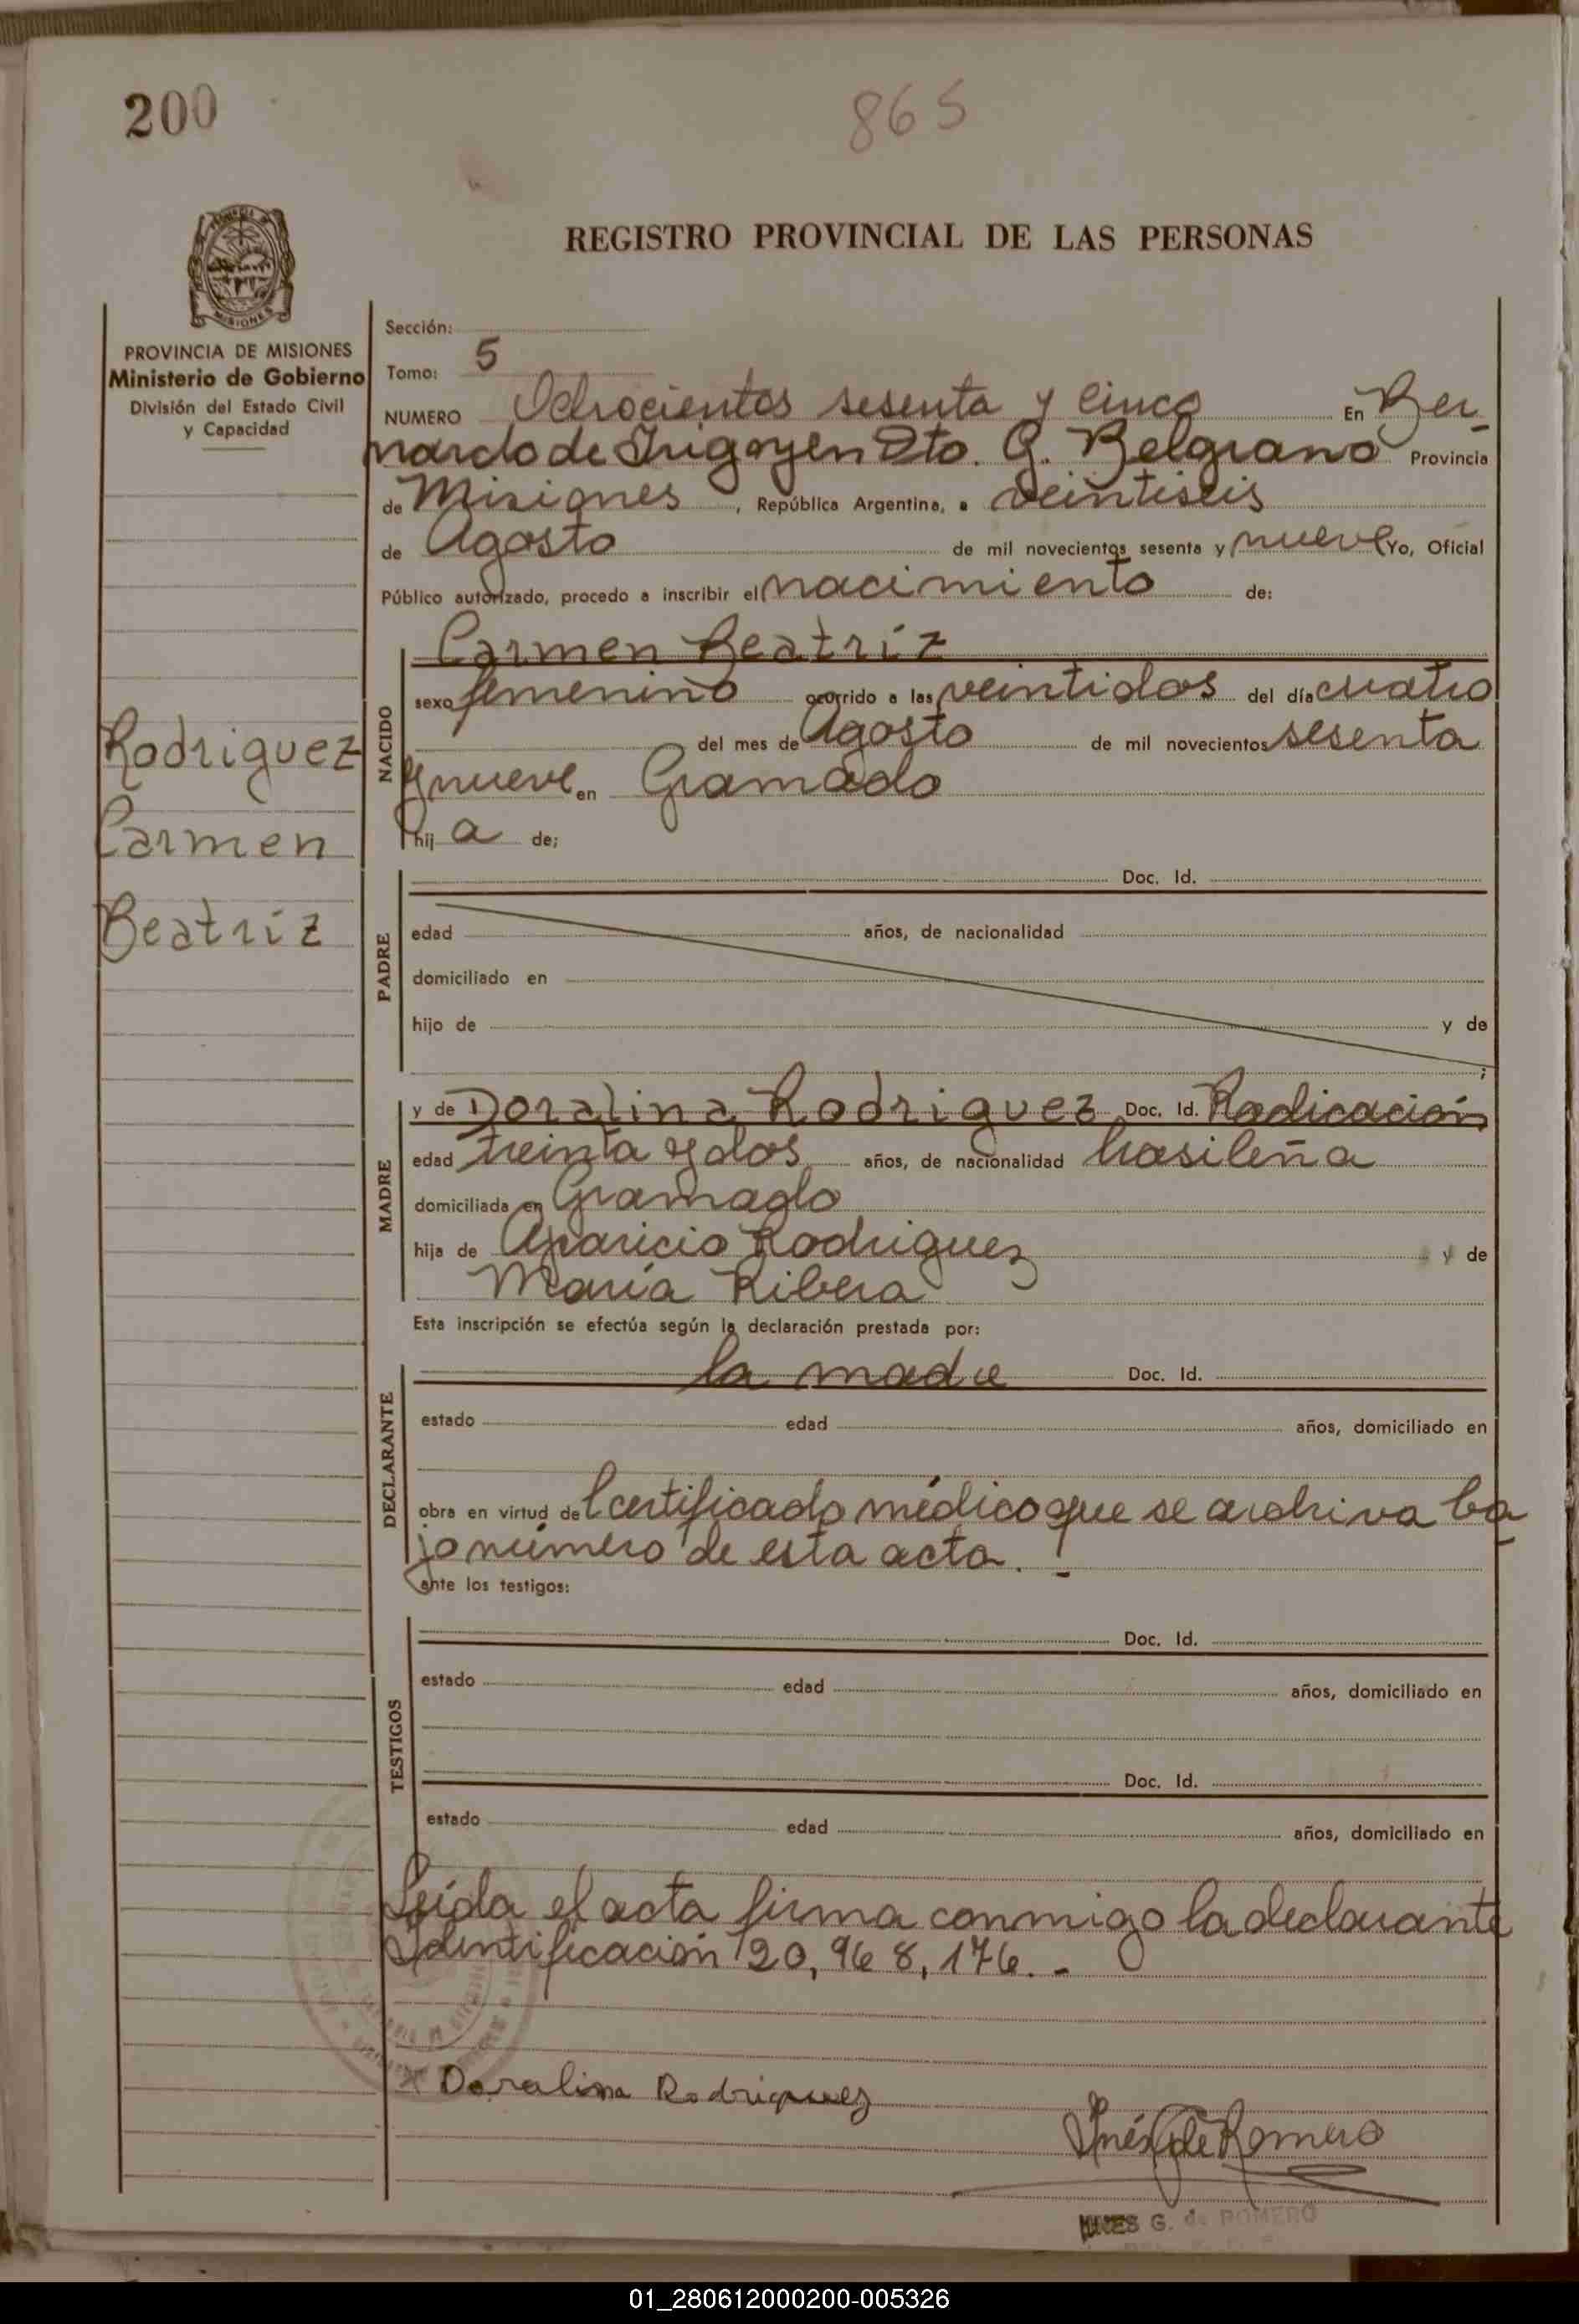 200
865
REGISTRO PROVINCIAL DE LAS PERSONAS
MISIONES
PROVINCIA DE MISIONES
Ministerio de Gobierno
División del Estado Civil
y Capacidad
Rodriguez
Carmen
Beatríz
Sección:
Tomo: 5
NUMERO Ochocientos sesenta y cinco En Ber-
nardo de Irigoyen Dto. G. Belgrano Provincia
de Misiones, República Argentina, a veintiseis
de Agosto de mil novecientos sesenta y nueve Yo, Oficial
Público autorizado, procedo a inscribir el nacimiento de:
NACIDO
Carmen Beatríz
sexo femenino ocurrido a las veintidos del día cuatro
del mes de Agosto de mil novecientos sesenta
y nueve en Gramado
hij a de;
PADRE
Doc. Id.
edad años, de nacionalidad
domiciliado en
hijo de y de
;
MADRE
y de Doralina Rodriguez Doc. Id. Radicación
edad treinta y dos años, de nacionalidad brasileña
domiciliada en Gramado
hija de Aparicio Rodriguez y de
María Ribera
Esta inscripción se efectúa según la declaración prestada por:
DECLARANTE
la madre Doc. Id.
estado edad años, domiciliado en
obra en virtud del certificado médico que se archiva ba-
jo número de esta acta.-
ante los testigos:
TESTIGOS
Doc. Id.
estado edad años, domiciliado en
Doc. Id.
estado edad años, domiciliado en
Leída el acta firma conmigo la declarante
Identificación 20,968,176.-
x Doralina Rodriguez
Inés G de Romero
INES G. de ROMERO
01_280612000200-005326